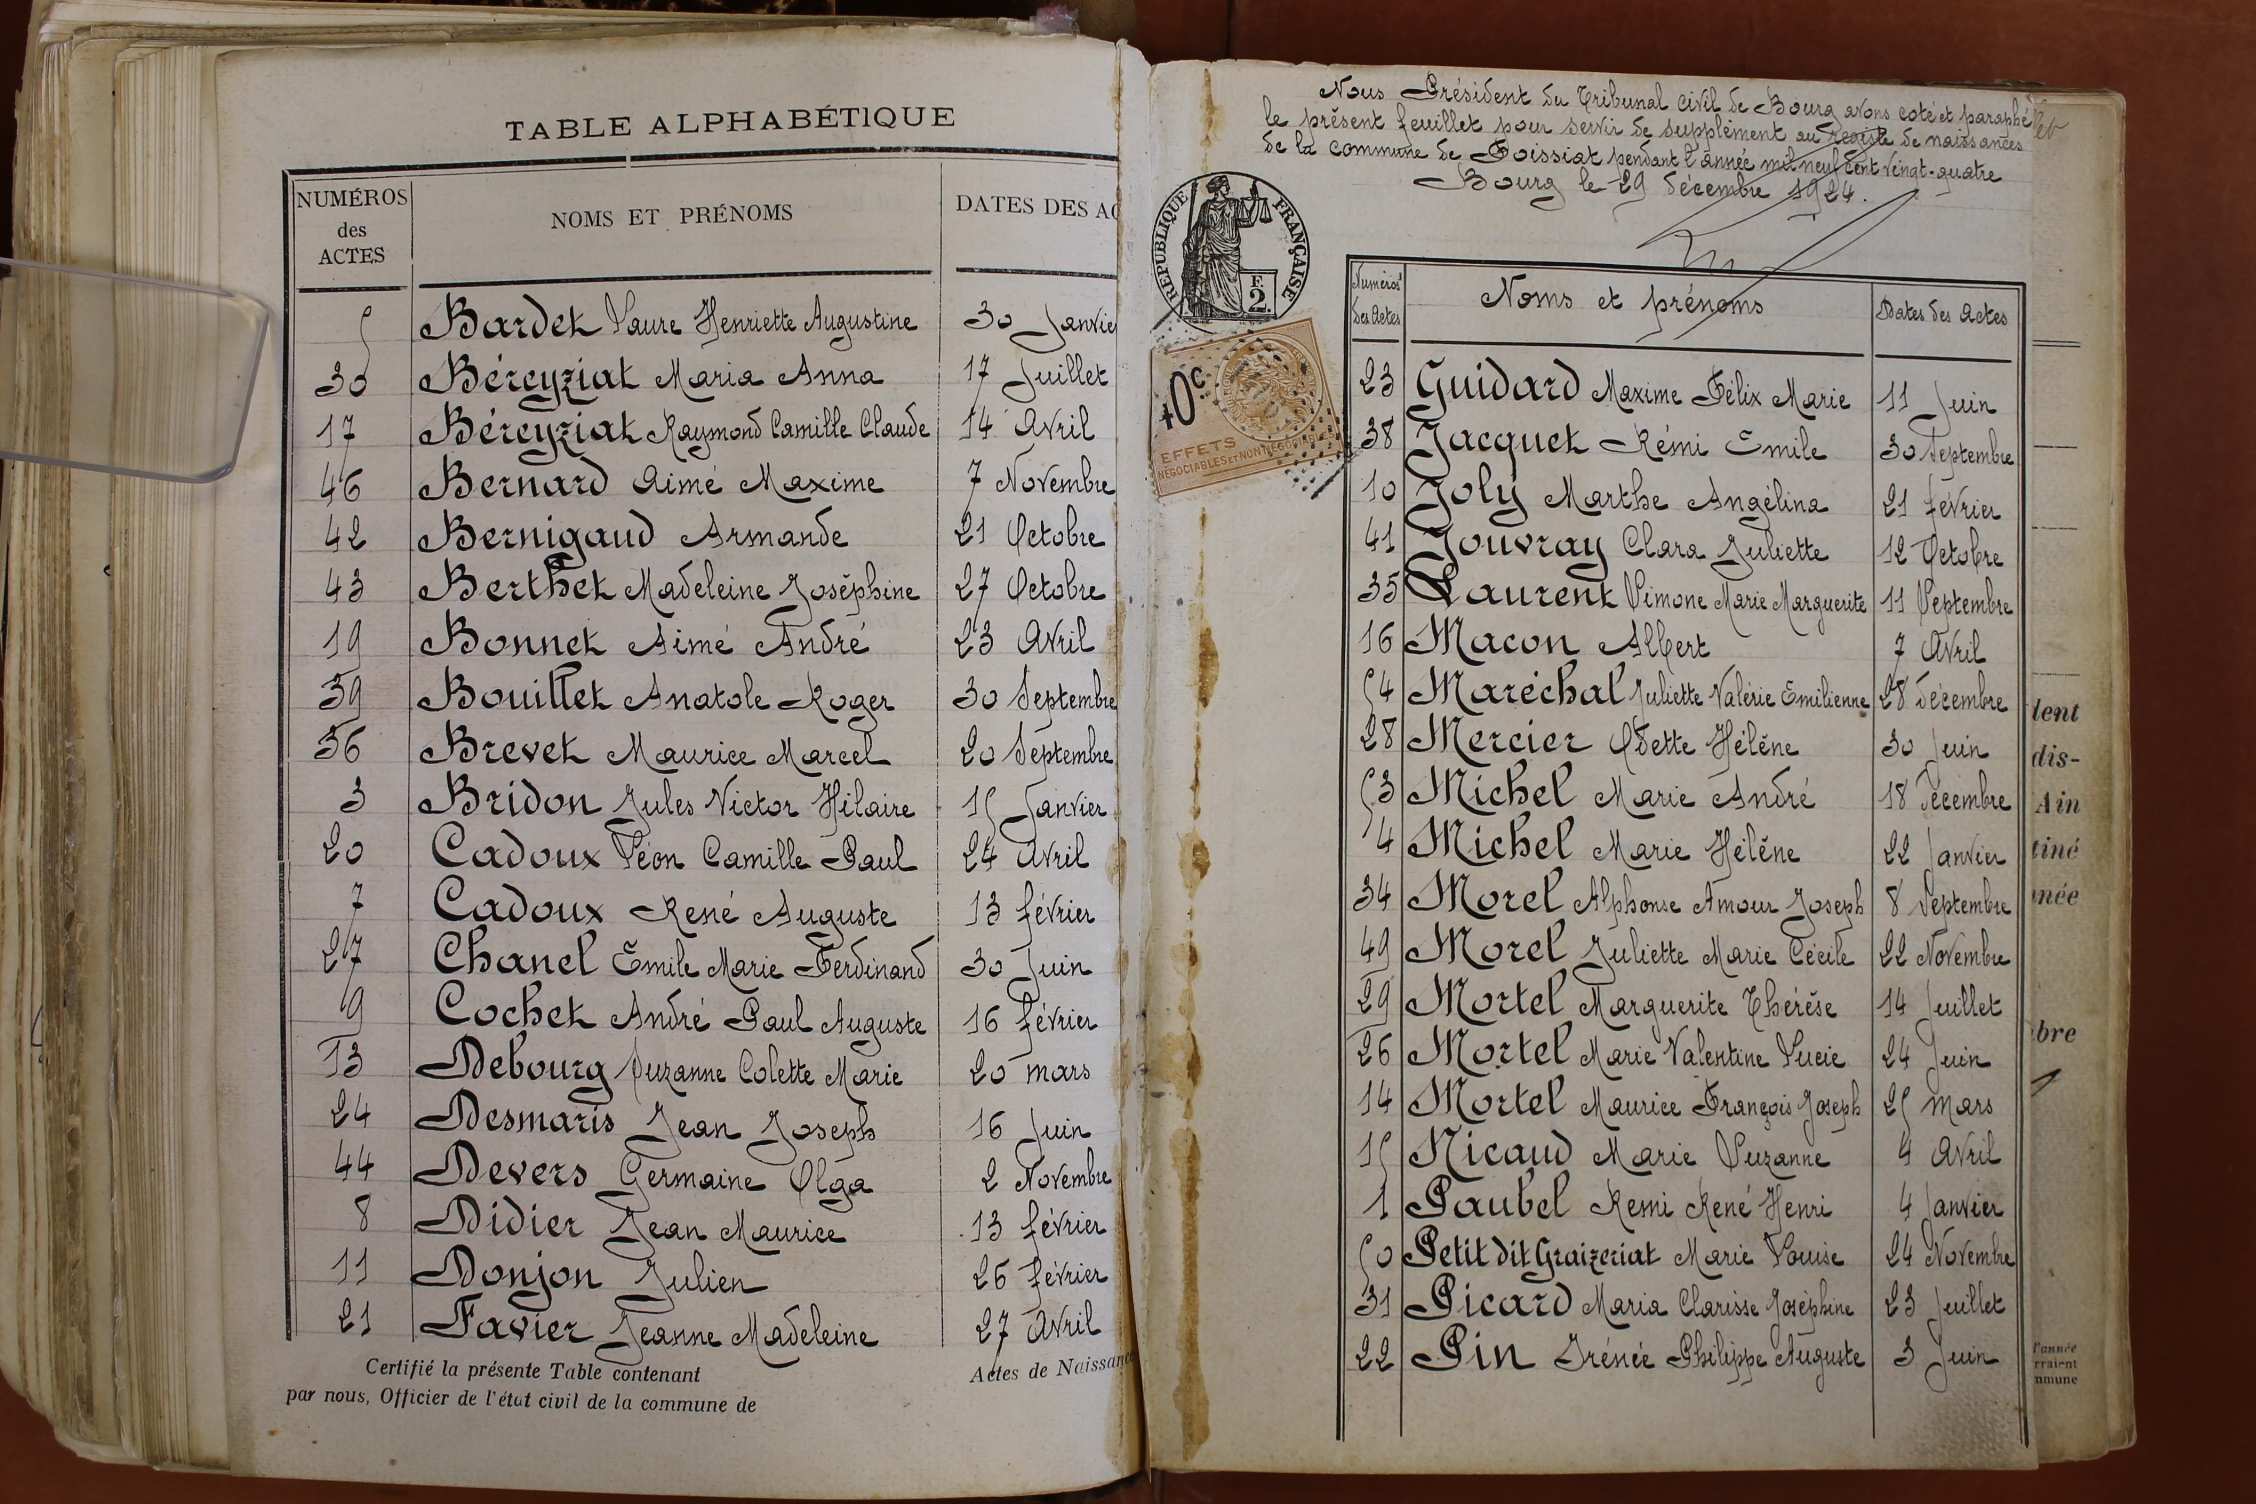 TABLE ALPHABÉTIQUE
NUMÉROS des ACTES
NOMS ET PRÉNOMS
DATES DES AC
5 Bardet Laure Henriette Augustine 30 Janvie
30 Béreyziat Maria Anna 17 Juillet
17 Béreyziat Raymond Camille Claude 14 Avril
46 Bernard Aimé Maxime 7 Novembre
42 Bernigaud Armande 21 Octobre
43 Berthet Madeleine Joséphine 27 Octobre
19 Bonnet Aimé André 23 Avril
39 Bouillet Anatole Roger 30 Septembre
36 Brevet Maurice Marcel 20 Septembre
3 Bridon Jules Victor Hilaire 15 Janvier
20 Cadoux Léon Camille Paul 24 Avril
7 Cadoux René Auguste 13 février
27 Chanel Emile Marie Ferdinand 30 Juin
9 Cochet André Paul Auguste 16 février
13 Debourg Suzanne Colette Marie 20 mars
24 Desmaris Jean Joseph 16 Juin
44 Devers Germaine Olga 2 Novembre
8 Didier Jean Maurice 13 février
11 Donjon Julien 26 février
21 Favier Jeanne Madeleine 27 Avril
Certifié la présente Table contenant Actes de Naissance
par nous, Officier de l'état civil de la commune de
Nous Président du Tribunal Civil de Bourg avons coté et paraphé
le présent feuillet pour servir de supplément au registe de naissances
de la commune de Foissiat pendant l'année mil neuf cent vingt-quatre
Bourg le 29 décembre 1924.
RÉPUBLIQUE FRANÇAISE
F. 2.
EFFETS
NÉGOCIABLES ET NON NÉGOCIABLES
Numéros des Actes
Noms et prénoms
Dates des Actes
23 Guidard Maxime Félix Marie 11 Juin
38 Jacquet Rémi Emile 30 Septembre
10 Joly Marthe Angélina 21 février
41 Jouvray Clara Juliette 12 Octobre
35 Laurent Simone Marie Marguerite 11 Septembre
16 Macon Albert 7 Avril
54 Maréchal Juliette Valérie Emilienne 28 décembre
28 Mercier Odette Hélène 30 Juin
53 Michel Marie André 18 Décembre
4 Michel Marie Hélène 22 Janvier
34 Morel Alphonse Amour Joseph 8 Septembre
49 Morel Juliette Marie Cécile 22 Novembre
29 Mortel Marguerite Thérèse 14 Juillet
26 Mortel Marie Valentine Lucie 24 Juin
14 Mortel Maurice François Joseph 25 mars
15 Nicaud Marie Suzanne 4 Avril
1 Paubel Remi René Henri 4 Janvier
50 Petit dit Graizeriat Marie Louise 24 Novembre
31 Picard Maria Clarisse Joséphine 23 Juillet
22 Pin Irénée Philippe Auguste 3 Juin
dis-
Ain
tiné
née
bre
l'année
rraient
mmune